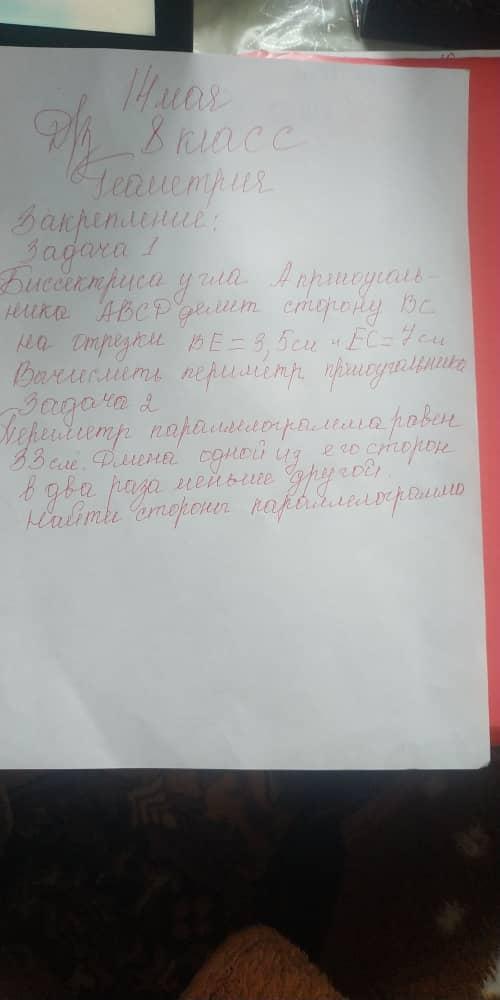 14 мая
Д/з 8 класс
Геометрия
Закрепление:
Задача 1
Биссектриса угла А прямоуголь-
ника ABCD делит сторону BC
на отрезки BE=3,5см и EC=7см
Вычислить периметр прямоугольника
Задача 2
Периметр параллелограмма равен
33см. Длина одной из его сторон
в два раза меньше другой.
Найти стороны параллелограмма